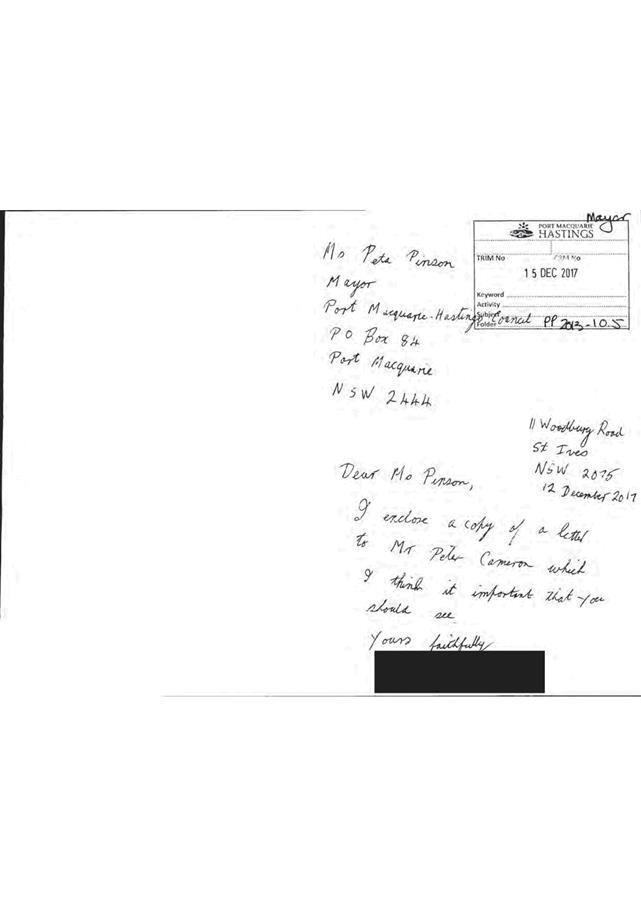 Mayor
PORT MACQUARIE
HASTINGS
TRIM No
CRM No
15 DEC 2017
Keyword
Activity
Subject
Folder
PP2013-10.5
Ms Peta Pinson
Mayor
Port Macquarie-Hastings Council
PO Box 84
Port Macquarie
NSW 2444
11 Woodbury Road
St Ives
NSW 2075
12 December 2017
Dear Ms Pinson,
I enclose a copy of a letter
to Mr Peter Cameron which
I think it important that you
should see
Yours faithfully